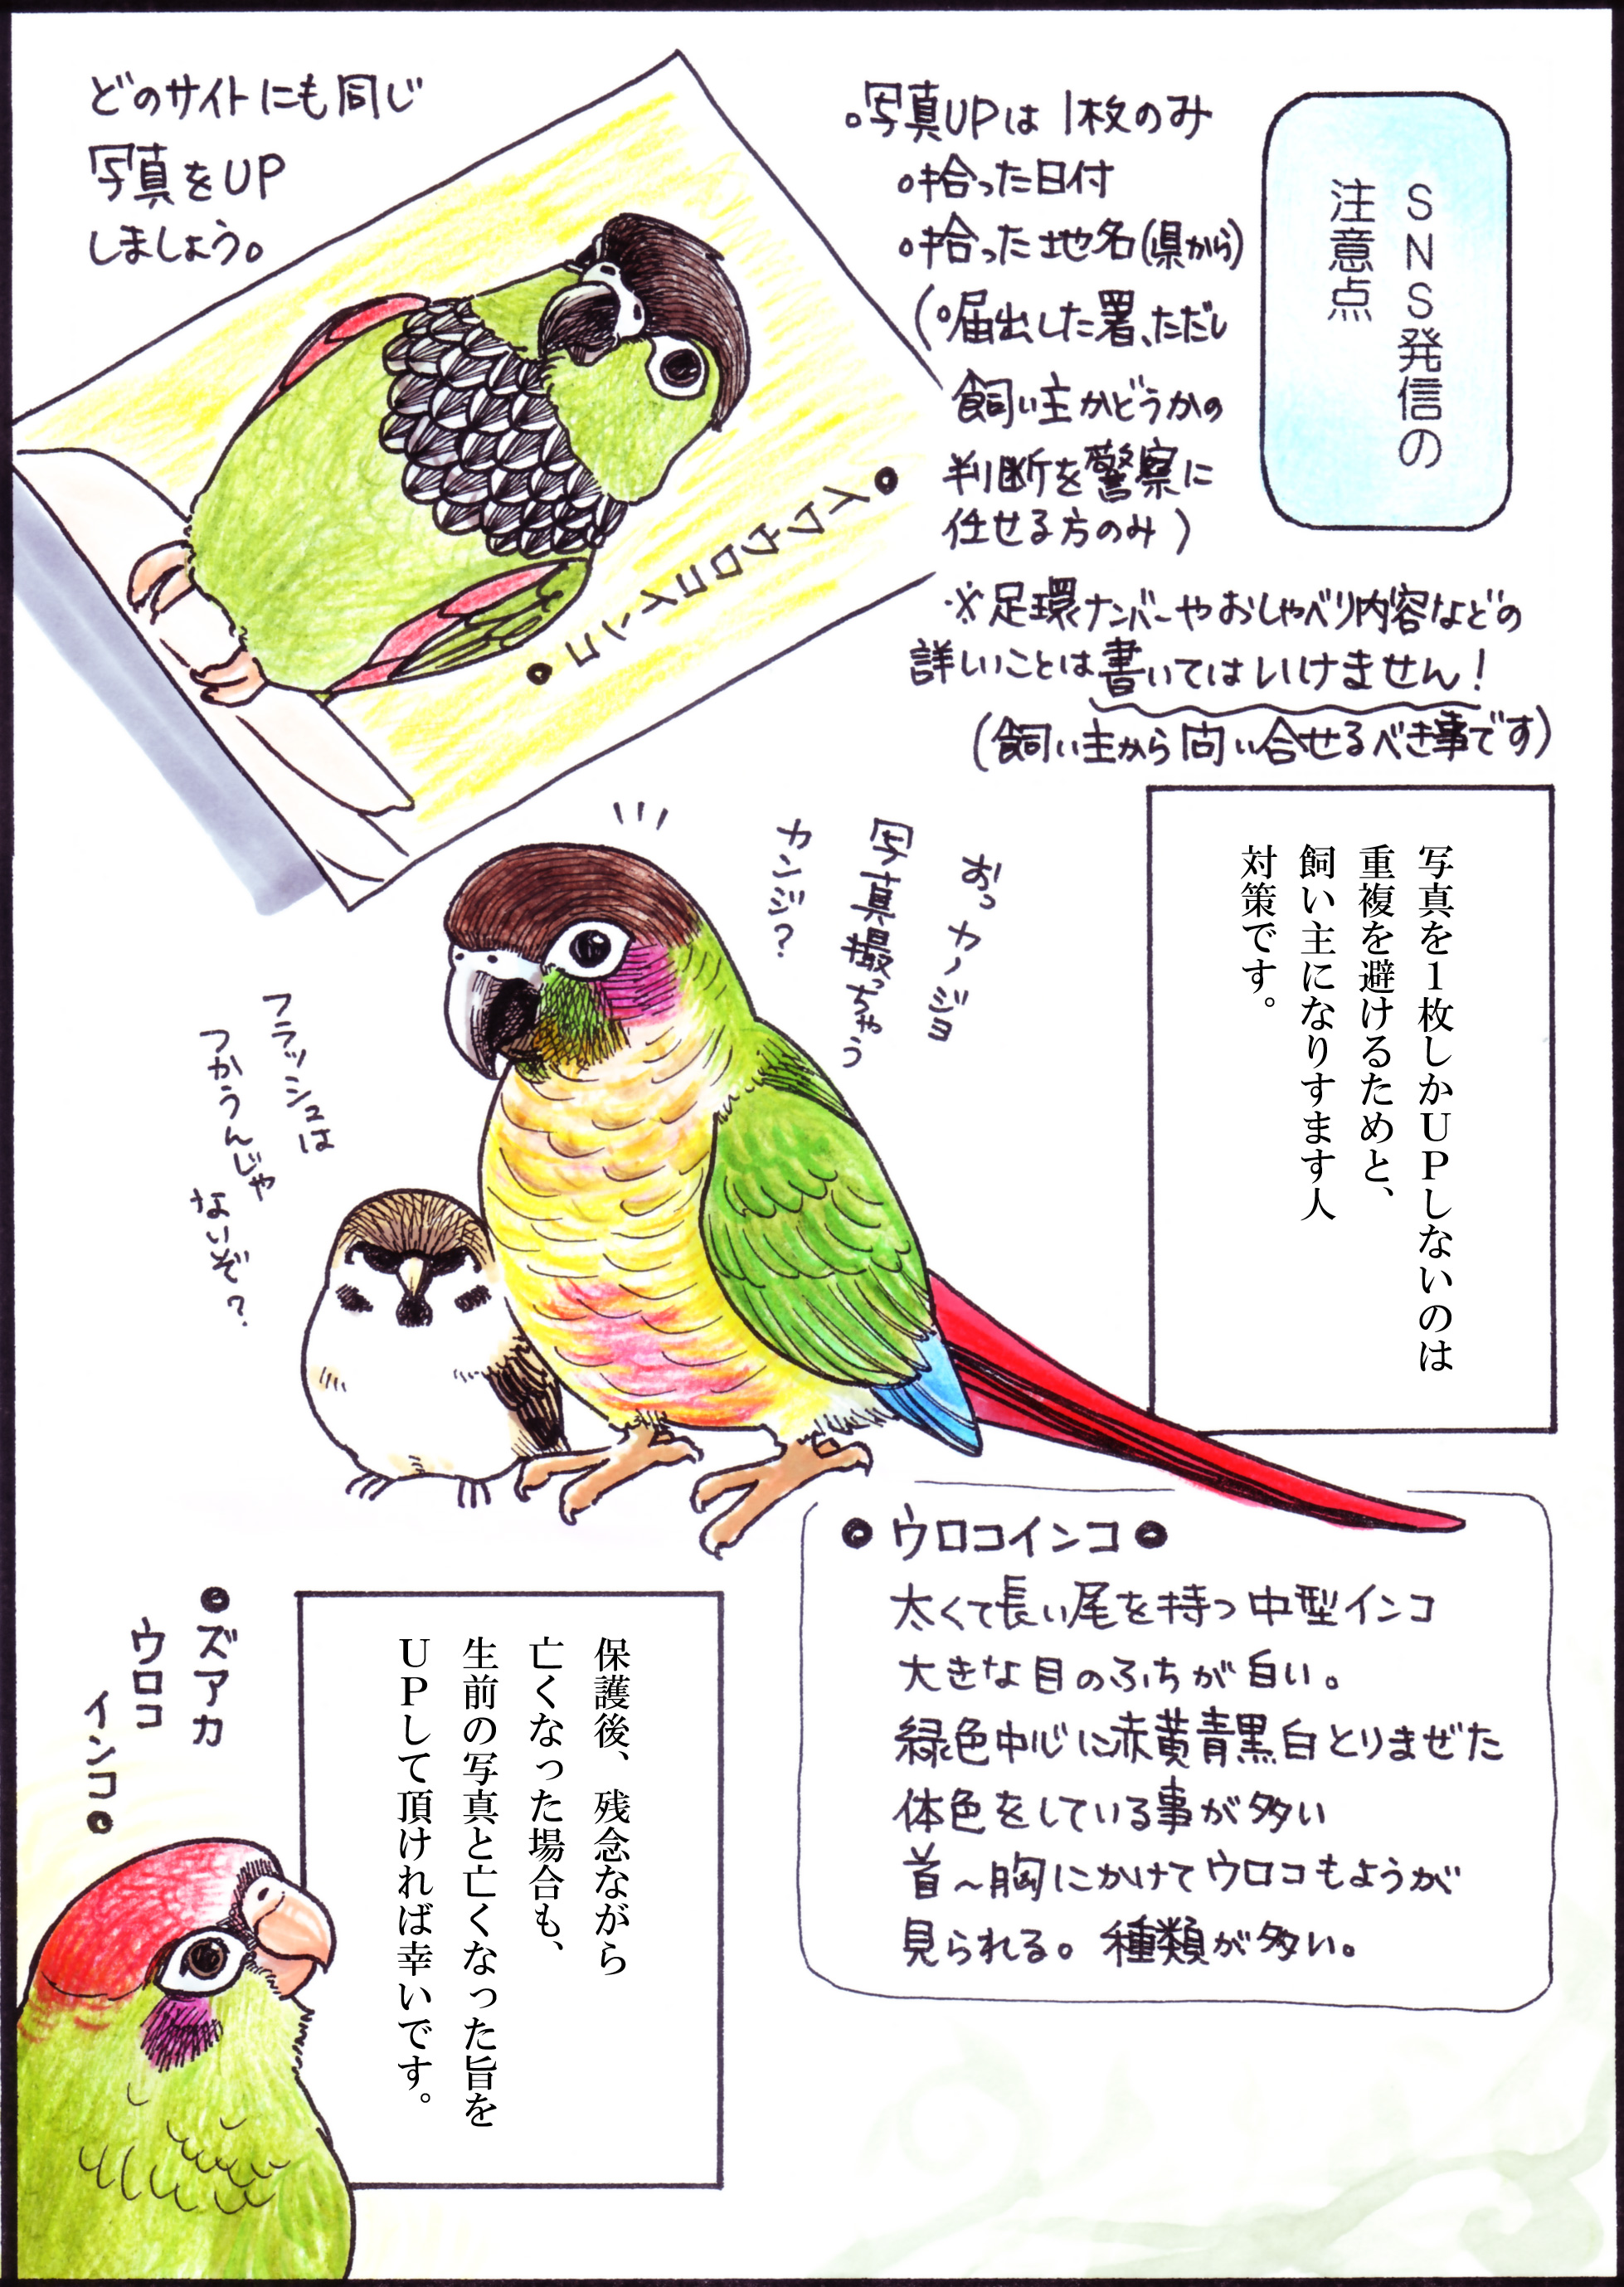 SNS発信の
注意点
。写真UPは1枚のみ
。拾った日付
。拾った地名(県から)
(。届出した署、ただし
飼い主かどうかの
判断を警察に
任せる方のみ)
※足環ナンバーやおしゃべり内容などの
詳しいことは書いてはいけません!
(飼い主から問い合せるべき事です)
どのサイトにも同じ
写真をUP
しましょう。
●イワウロコインコ●
写真を1枚しかUPしないのは
重複を避けるためと、
飼い主になりすます人
対策です。
おっカノジョ
写真撮っちゃう
カンジ?
フラッシュは
つかうんじゃ
ないぞ?
●ウロコインコ●
太くて長い尾を持つ中型インコ
大きな目のふちが白い。
緑色中心に赤黄青黒白とりまぜた
体色をしている事が多い
首〜胸にかけてウロコもようが
見られる。種類が多い。
保護後、残念ながら
亡くなった場合も、
生前の写真と亡くなった旨を
UPして頂ければ幸いです。
●ズアカ
ウロコ
インコ●